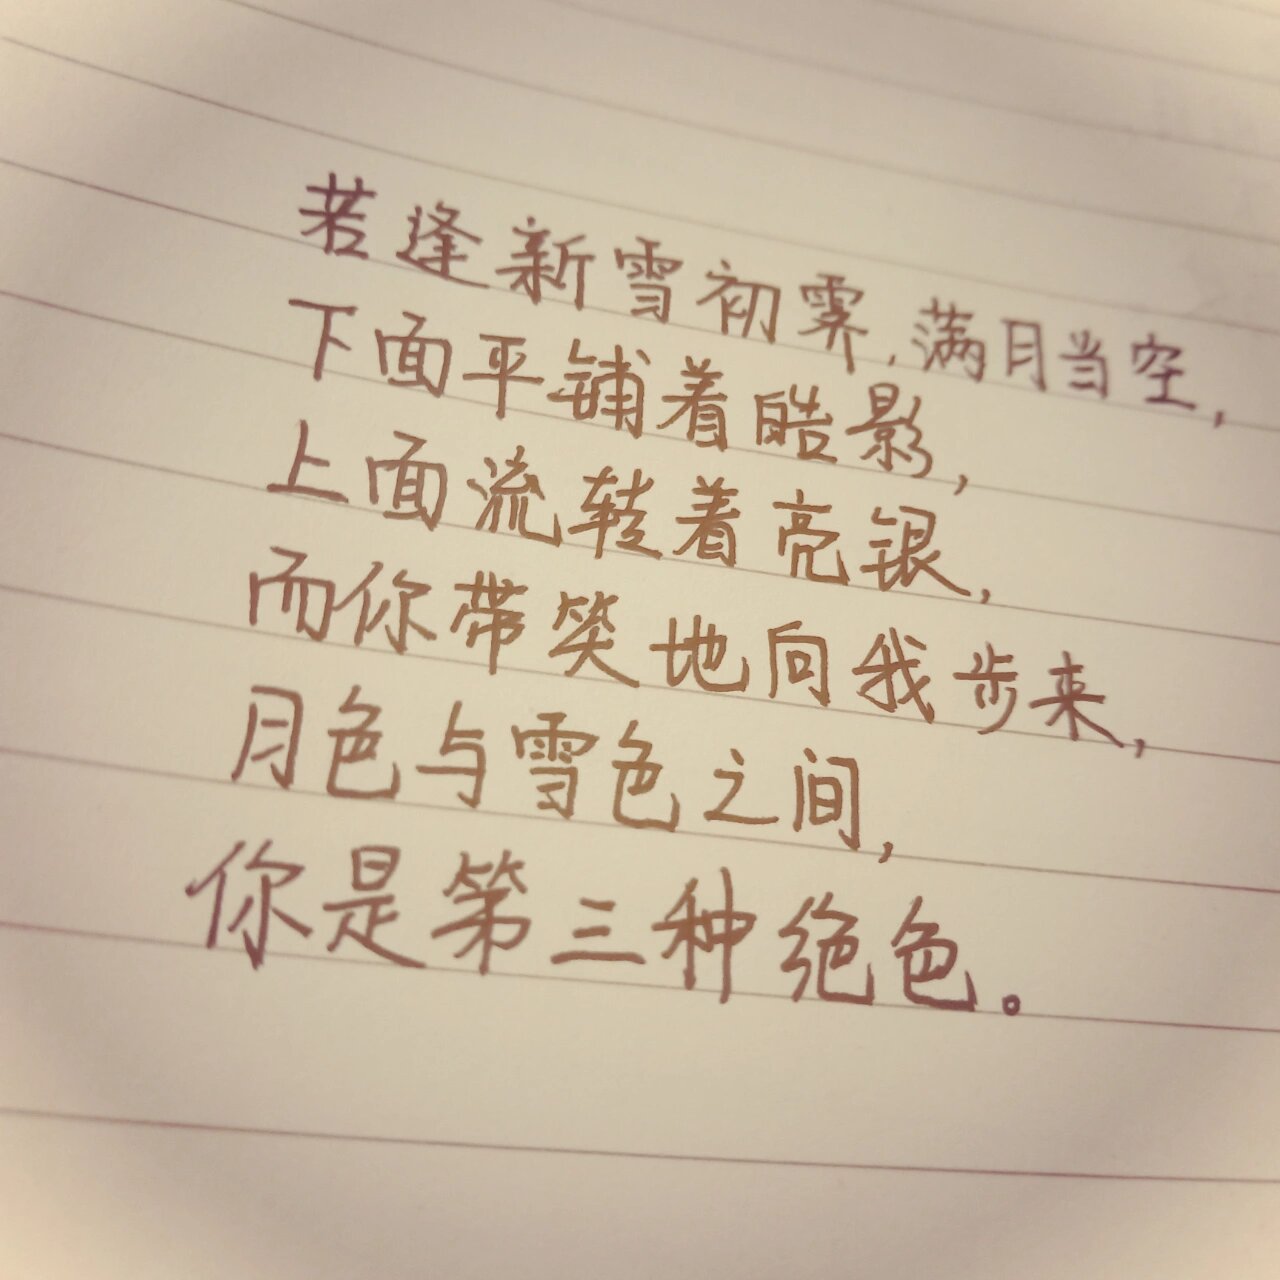 若逢新雪初霁,满月当空,
下面平铺着皓影,
上面流转着亮银,
而你带笑地向我步来,
月色与雪色之间,
你是第三种绝色。